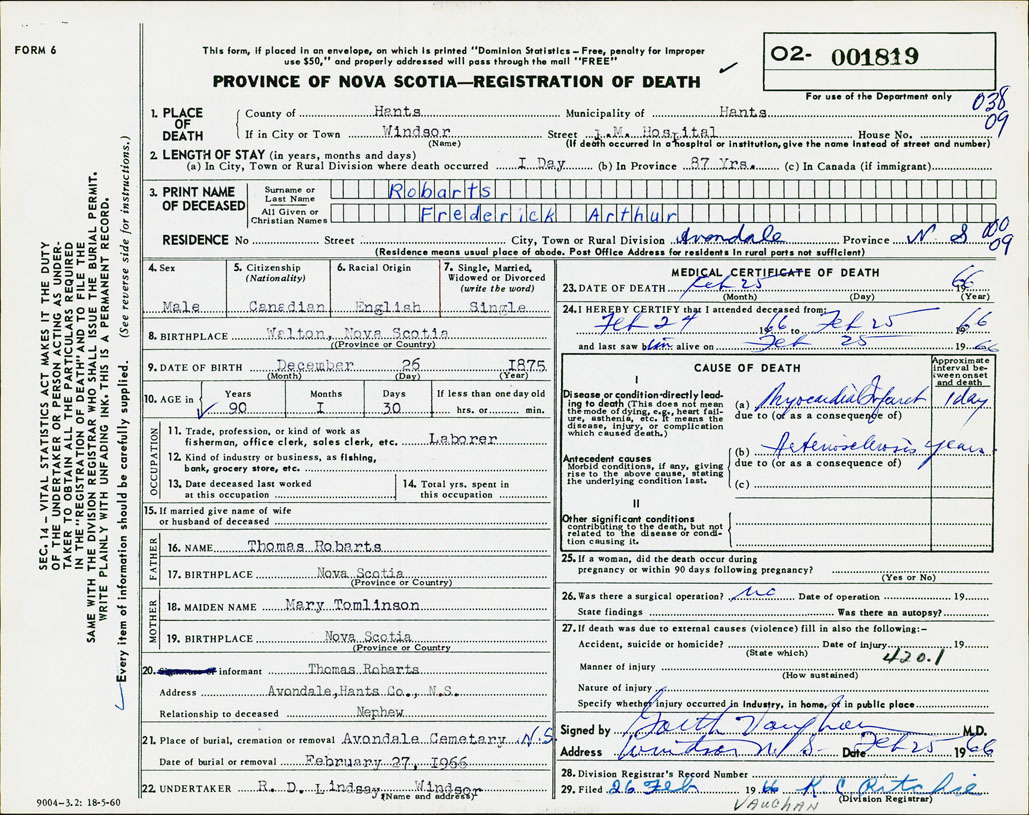 FORM 6
This form, if placed in an envelope, on which is printed "Dominion Statistics – Free, penalty for improper
use $50," and properly addressed will pass through the mail "FREE"
PROVINCE OF NOVA SCOTIA—REGISTRATION OF DEATH
02- 001819
For use of the Department only
038
09
1. PLACE OF DEATH
County of Hants Municipality of Hants
If in City or Town Windsor Street P.M. Hospital House No.
(Name) (If death occurred in a hospital or institution, give the name instead of street and number)
2. LENGTH OF STAY (in years, months and days)
(a) In City, Town or Rural Division where death occurred I Day (b) In Province 87 Yrs. (c) In Canada (if immigrant)
3. PRINT NAME OF DECEASED
Surname or Last Name Robarts
All Given or Christian Names Frederick Arthur
RESIDENCE No Street City, Town or Rural Division Avondale Province N. S
000
09
(Residence means usual place of abode. Post Office Address for residents in rural parts not sufficient)
4. Sex Male
5. Citizenship (Nationality) Canadian
6. Racial Origin English
7. Single, Married, Widowed or Divorced (write the word) Single
8. BIRTHPLACE Walton, Nova Scotia
(Province or Country)
9. DATE OF BIRTH December 26 I875
(Month) (Day) (Year)
10. AGE in Years Months Days If less than one day old
90 I 30 hrs. or min.
OCCUPATION
11. Trade, profession, or kind of work as
fisherman, office clerk, sales clerk, etc. Laborer
12. Kind of industry or business, as fishing,
bank, grocery store, etc.
13. Date deceased last worked at this occupation
14. Total yrs. spent in this occupation
15. If married give name of wife
or husband of deceased
FATHER
16. NAME Thomas Robarts
17. BIRTHPLACE Nova Scotia
(Province or Country)
MOTHER
18. MAIDEN NAME Mary Tomlinson
19. BIRTHPLACE Nova Scotia
(Province or Country
20. Signature of informant Thomas Robarts
Address Avondale,Hants Co., N.S.
Relationship to deceased Nephew
21. Place of burial, cremation or removal Avondale Cemetary N.S.
Date of burial or removal February 27, I966
22. UNDERTAKER R. D. Lindsay, Windsor
(Name and address)
MEDICAL CERTIFICATE OF DEATH
23. DATE OF DEATH Feb 25 19 66
(Month) (Day) (Year)
24. I HEREBY CERTIFY that I attended deceased from:
Feb 24 1966 to Feb 25 1966
and last saw him alive on Feb 25 1966
CAUSE OF DEATH
Approximate interval between onset and death
I
Disease or condition directly leading to death (This does not mean
the mode of dying, e.g., heart failure, asthenia, etc. It means the
disease, injury, or complication
which caused death.)
(a) Myocardial Infarct 1 day
due to (or as a consequence of)
Antecedent causes
Morbid conditions, if any, giving
rise to the above cause, stating
the underlying condition last.
(b) Arteriosclerosis years
due to (or as a consequence of)
(c)
II
Other significant conditions
contributing to the death, but not
related to the disease or condition causing it.
25. If a woman, did the death occur during
pregnancy or within 90 days following pregnancy?
(Yes or No)
26. Was there a surgical operation? no Date of operation 19
State findings Was there an autopsy?
27. If death was due to external causes (violence) fill in also the following:–
Accident, suicide or homicide? Date of injury 19
(State which) 420.1
Manner of injury
(How sustained)
Nature of injury
Specify whether injury occurred in industry, in home, or in public place
Signed by Garth Vaughan M.D.
Address Windsor N.S. Date Feb 25 1966
28. Division Registrar's Record Number
29. Filed 26 Feb 1966 K C Ritchie
(Division Registrar)
VAUGHAN
9004–3.2: 18-5-60
SEC. 14 – VITAL STATISTICS ACT MAKES IT THE DUTY
OF THE UNDERTAKER OR PERSON ACTING AS UNDER-
TAKER TO OBTAIN ALL THE PARTICULARS REQUIRED
IN THE "REGISTRATION OF DEATH" AND TO FILE THE
SAME WITH THE DIVISION REGISTRAR WHO SHALL ISSUE THE BURIAL PERMIT.
WRITE PLAINLY WITH UNFADING INK. THIS IS A PERMANENT RECORD.
Every item of information should be carefully supplied. (See reverse side for instructions.)